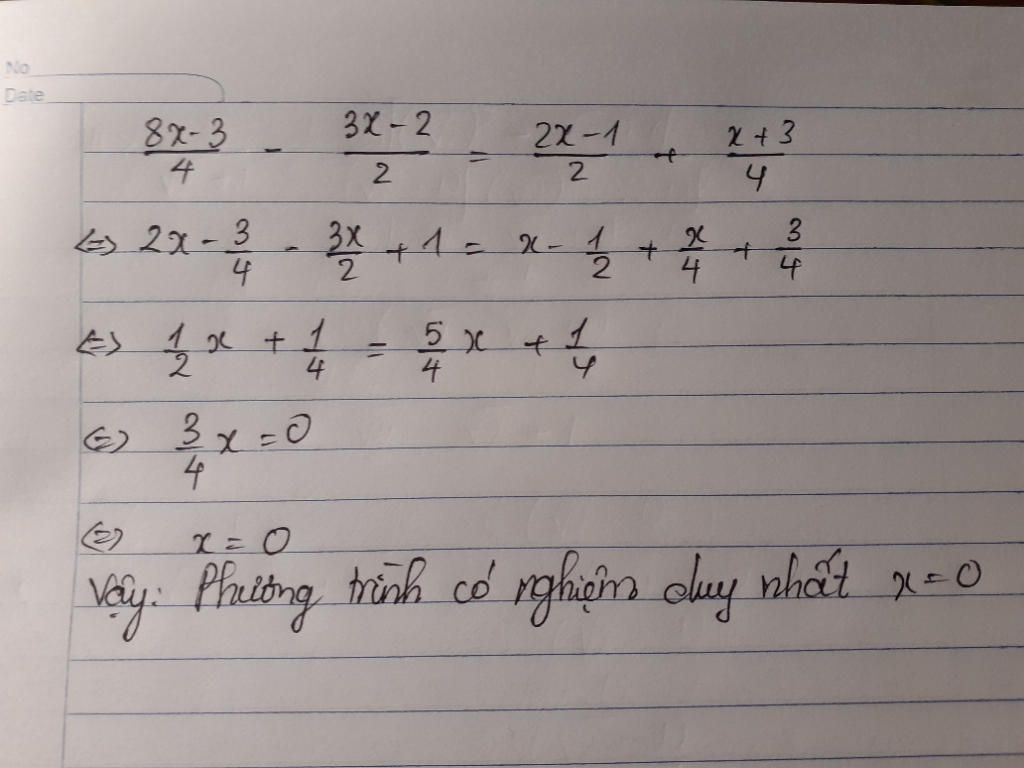 No
Date
8x-3/4 - 3x-2/2 = 2x-1/2 + x+3/4
⇔ 2x - 3/4 - 3x/2 + 1 = x - 1/2 + x/4 + 3/4
⇔ 1/2 x + 1/4 = 5/4 x + 1/4
⇔ 3/4 x = 0
⇔ x = 0
Vậy: Phương trình có nghiệm duy nhất x = 0